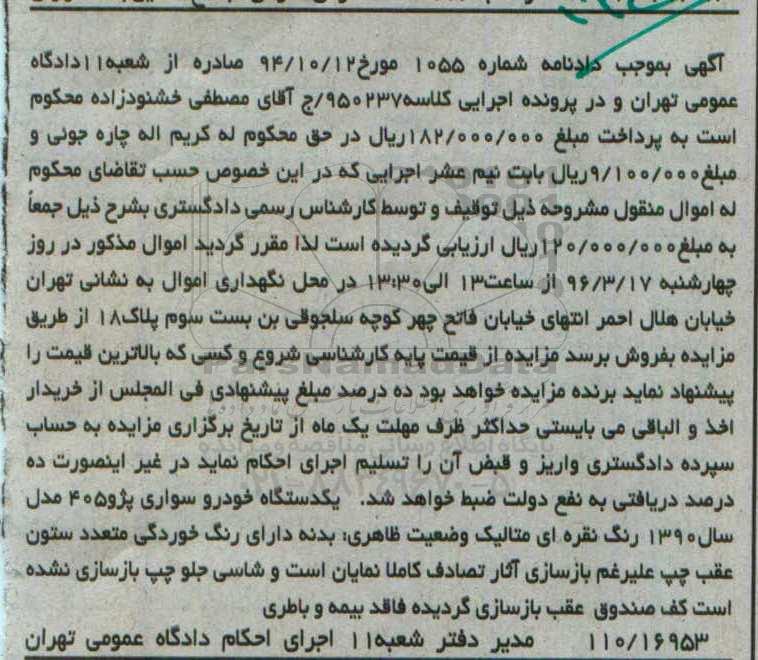 آگهی بموجب دادنامه شماره ۱۰۵۵ مورخ۹۴/۱۰/۱۲ صادره از شعبه۱۱دادگاه
عمومی تهران و در پرونده اجرایی کلاسه۹۵۰۲۳۷/ج آقای مصطفی خشنودزاده محکوم
است به پرداخت مبلغ ۱۸۲/۰۰۰/۰۰۰ریال در حق محکوم له کریم اله چاره جوئی و
مبلغ۹/۱۰۰/۰۰۰ریال بابت نیم عشر اجرایی که در این خصوص حسب تقاضای محکوم
له اموال منقول مشروحه ذیل توقیف و توسط کارشناس رسمی دادگستری بشرح ذیل جمعاً
به مبلغ۱۲۰/۰۰۰/۰۰۰ریال ارزیابی گردیده است لذا مقرر گردید اموال مذکور در روز
چهارشنبه ۹۶/۳/۱۷ از ساعت۱۳ الی۱۳:۳۰ در محل نگهداری اموال به نشانی تهران
خیابان هلال احمر انتهای خیابان فاتح چهر کوچه سلجوقی بن بست سوم پلاک۱۸ از طریق
مزایده بفروش برسد مزایده از قیمت پایه کارشناسی شروع و کسی که بالاترین قیمت را
ParsNamadData
پیشنهاد نماید برنده مزایده خواهد بود ده درصد مبلغ پیشنهادی فی المجلس از خریدار
اخذ و الباقی می بایستی حداکثر ظرف مهلت یک ماه از تاریخ برگزاری مزایده به حساب
پایگاه اطلاع رسانی مناقصه و مزایده
سپرده دادگستری واریز و قبض آن را تسلیم اجرای احکام نماید در غیر اینصورت ده
۰۲۱-۸۸۳۴۹۶۷۰-۵
درصد دریافتی به نفع دولت ضبط خواهد شد. یکدستگاه خودرو سواری پژو۴۰۵ مدل
سال۱۳۹۰ رنگ نقره ای متالیک وضعیت ظاهری: بدنه دارای رنگ خوردگی متعدد ستون
عقب چپ علیرغم بازسازی آثار تصادف کاملا نمایان است و شاسی جلو چپ بازسازی نشده
است کف صندوق عقب بازسازی گردیده فاقد بیمه و باطری
۱۱۰/۱۶۹۵۳ مدیر دفتر شعبه۱۱ اجرای احکام دادگاه عمومی تهران